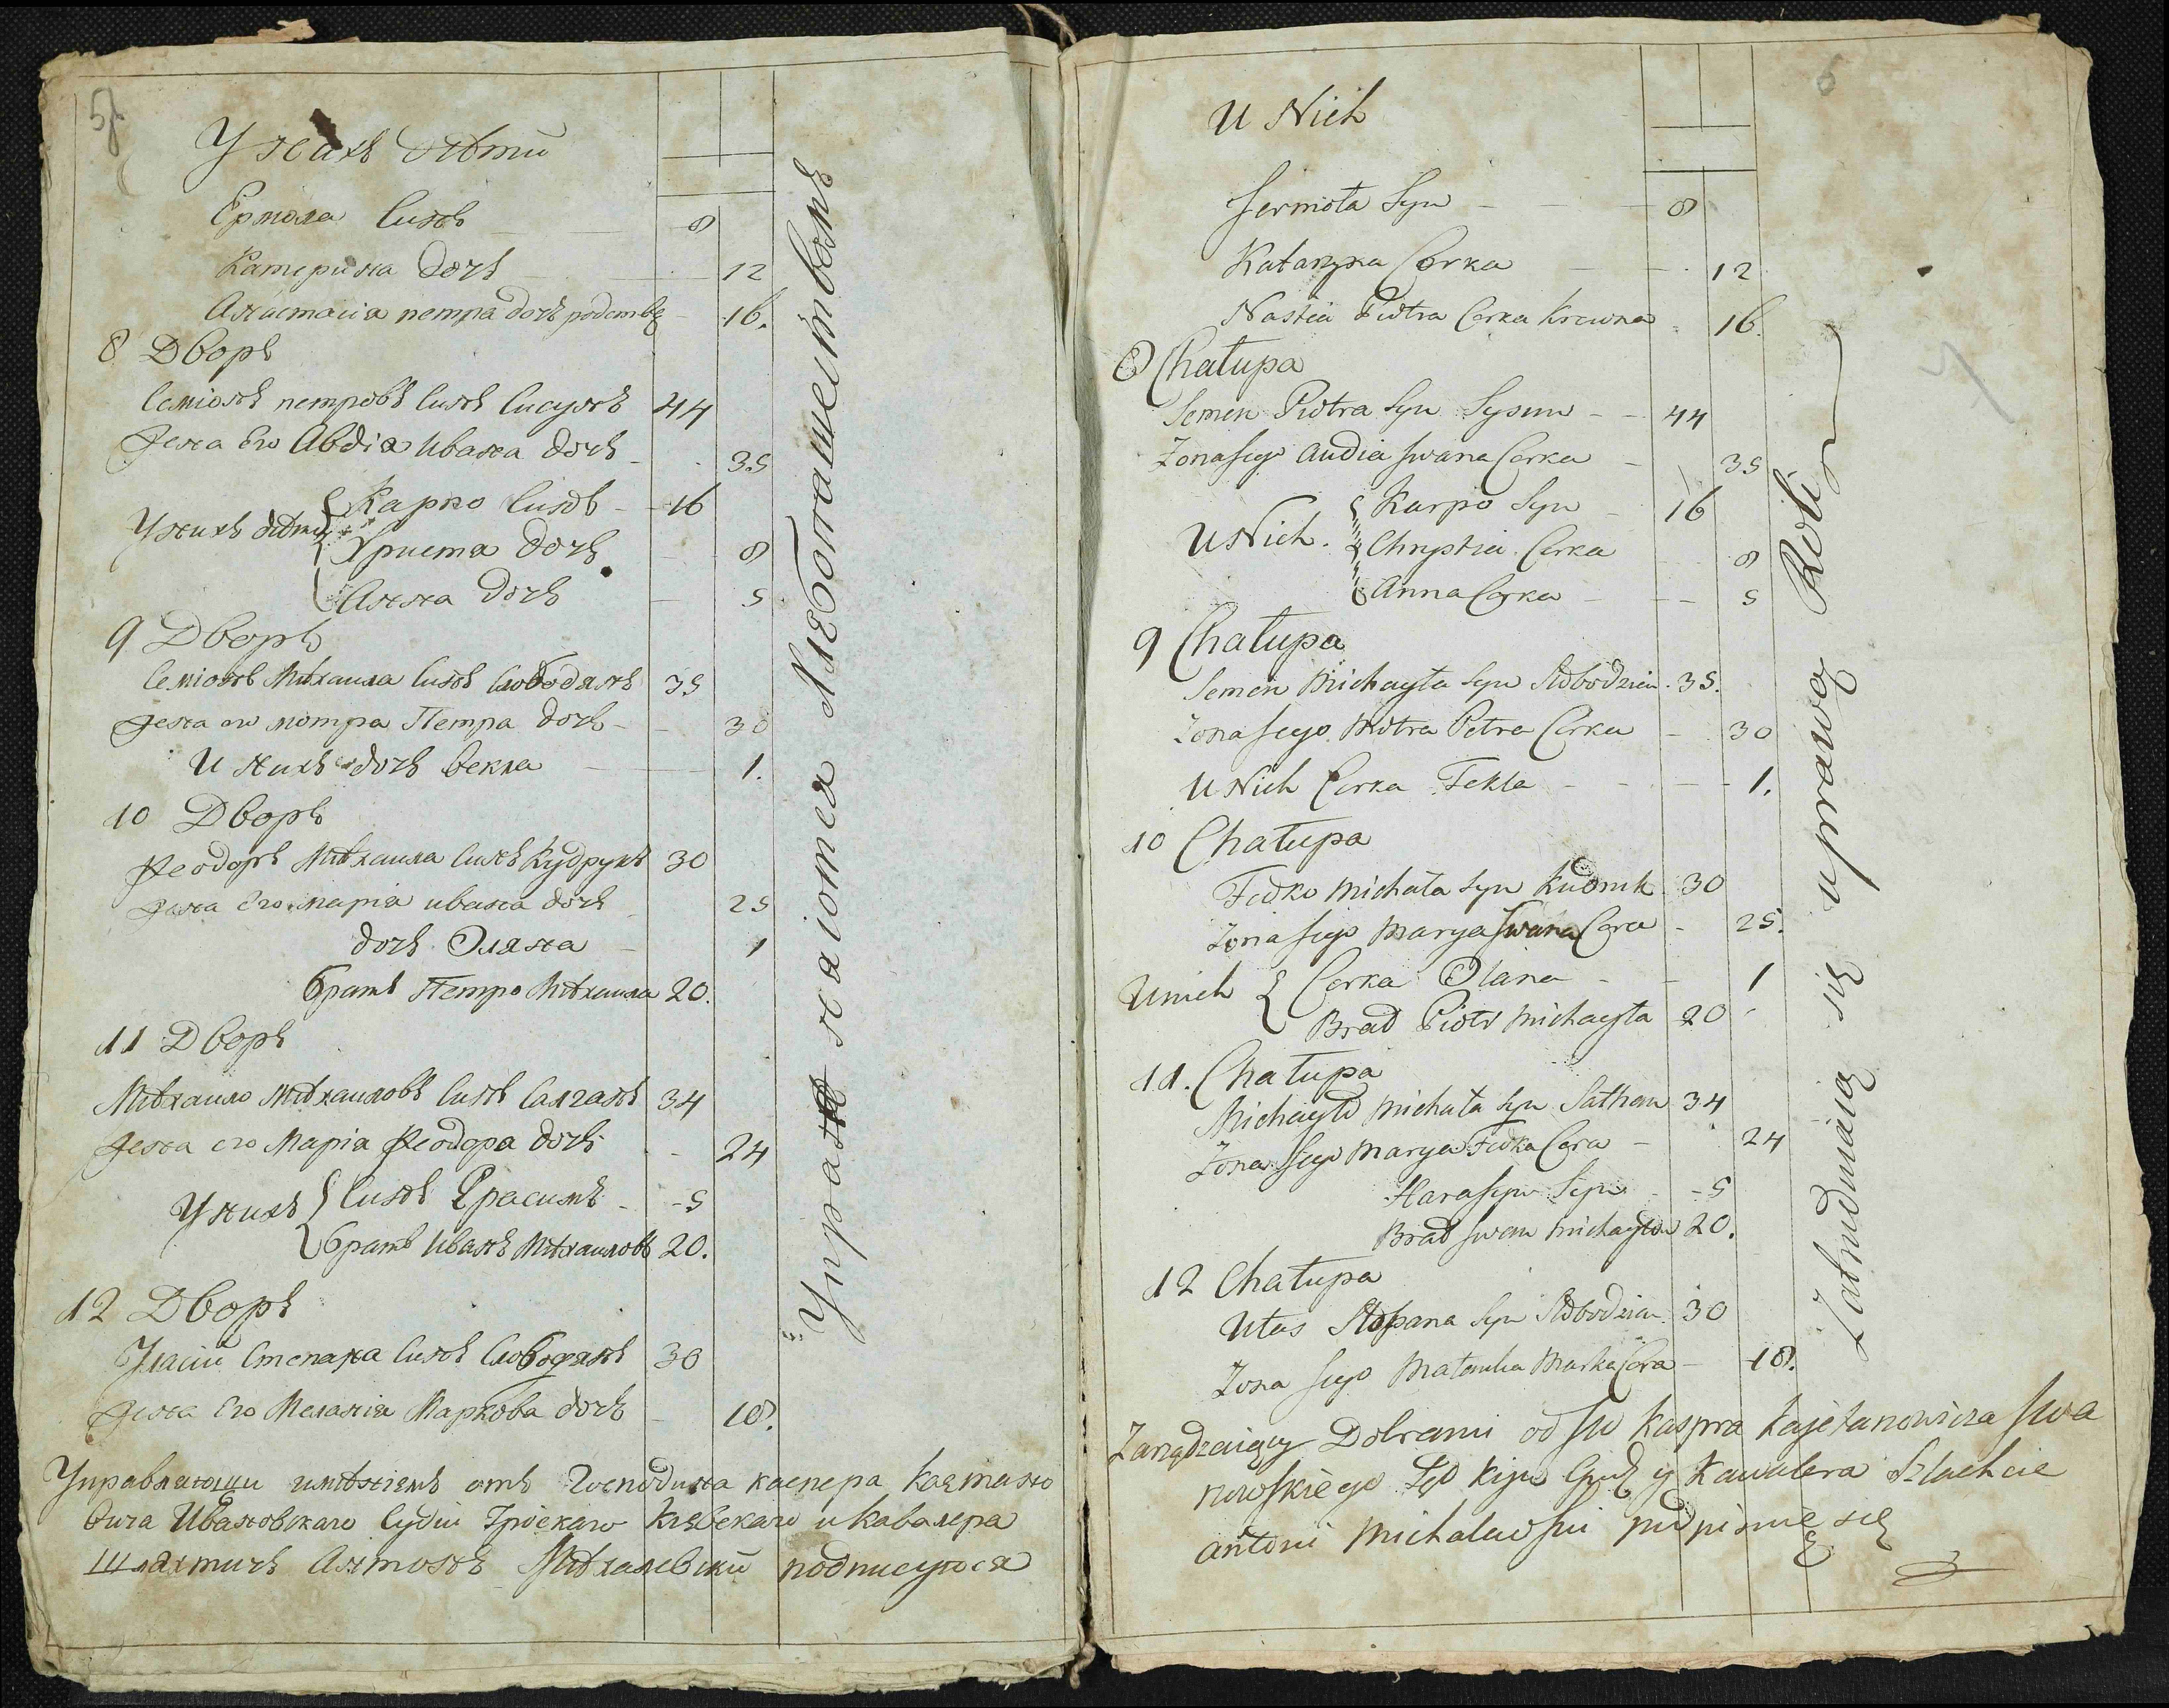 У нихъ дѣти
Ермола Синъ 8
Катерина дочъ 12
Анастасія петра дочъ 16.
8 Дворъ
Семіонъ петровъ Синъ Сисунъ 44
Жена Его Авдія Ивана дочъ 35
У нихъ дѣти Карпо Синъ 16
Христя дочъ 8
Анна дочъ 5
9 Дворъ
Семіонъ Михаила Синъ Слободянъ 35
Жена его мотра Петра дочъ 30
У нихъ дочъ Векла 1.
10 Дворъ
Феодоръ Михаила Синъ Кудрукъ 30
Жена Его марія ивана дочъ 25
дочъ Оляна 1
братъ Петро Михаила 20.
11 Дворъ
Михаило Михаиловъ Синъ Салганъ 34
Жена его Марія Феодора дочъ 24
У нихъ Синъ Ерасимъ 5
братъ Иванъ Михаиловъ 20.
12 Дворъ
Уласій Степана Синъ Слободянъ 30
Жена Его Меланія Маркова дочъ 18.
Управляющи имѣніемъ отъ Господина каспера Каетано
вича Ивановскаго Судіи Кіевскаго и Кавалера
Шляхтичъ Антонъ Михалевский подписуюся
Упражняются Хлебопашествомъ
U Nich
Jermoła Syn 8
Katarzyna Corka 12
Nastia Piotra Corka Krewna 16.
8 Chałupa
Semen Piotra Syn Sysun 44
Zona Jego Audia Jwana Corka 35
U Nich. Karpo Syn 16
Chrystia Corka 8
Anna Corka 5
9 Chałupa
Semen Michayła Syn Słobodzian 35.
Zona Jego Motra Petra Corka 30
U Nich Corka Tekla 1.
10 Chałupa
Fedko Michała Syn Kudruk 30
Zona Jego Marya Jwana Cora 25.
U nich Corka Olana 1
Brad Piotr Michayła 20
11. Chałupa
Michayło Michała Syn Sałhan 34
Zona Jego Marya Fedka Cora 24
Harasym Syn 5
Brad Jwan Michayłow 20.
12 Chałupa
Ułas Stepana Syn Słobodzian 30
Zona Jego Małanka Marka Cora 18.
Zarządzaiący Dobrami od Kaspra Kajetanowicza Jwa
nowskiego y Kawalera Szlachcic
Antoni Michalewski podpisuię się
Zatrudniaią się uprawą Roli